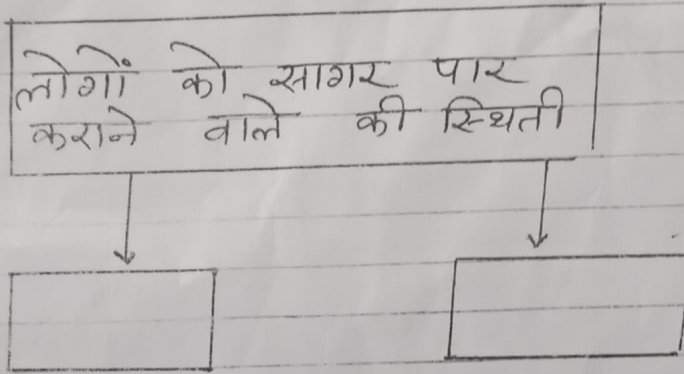 लोगों को सागर पार
कराने वाले की स्थिती